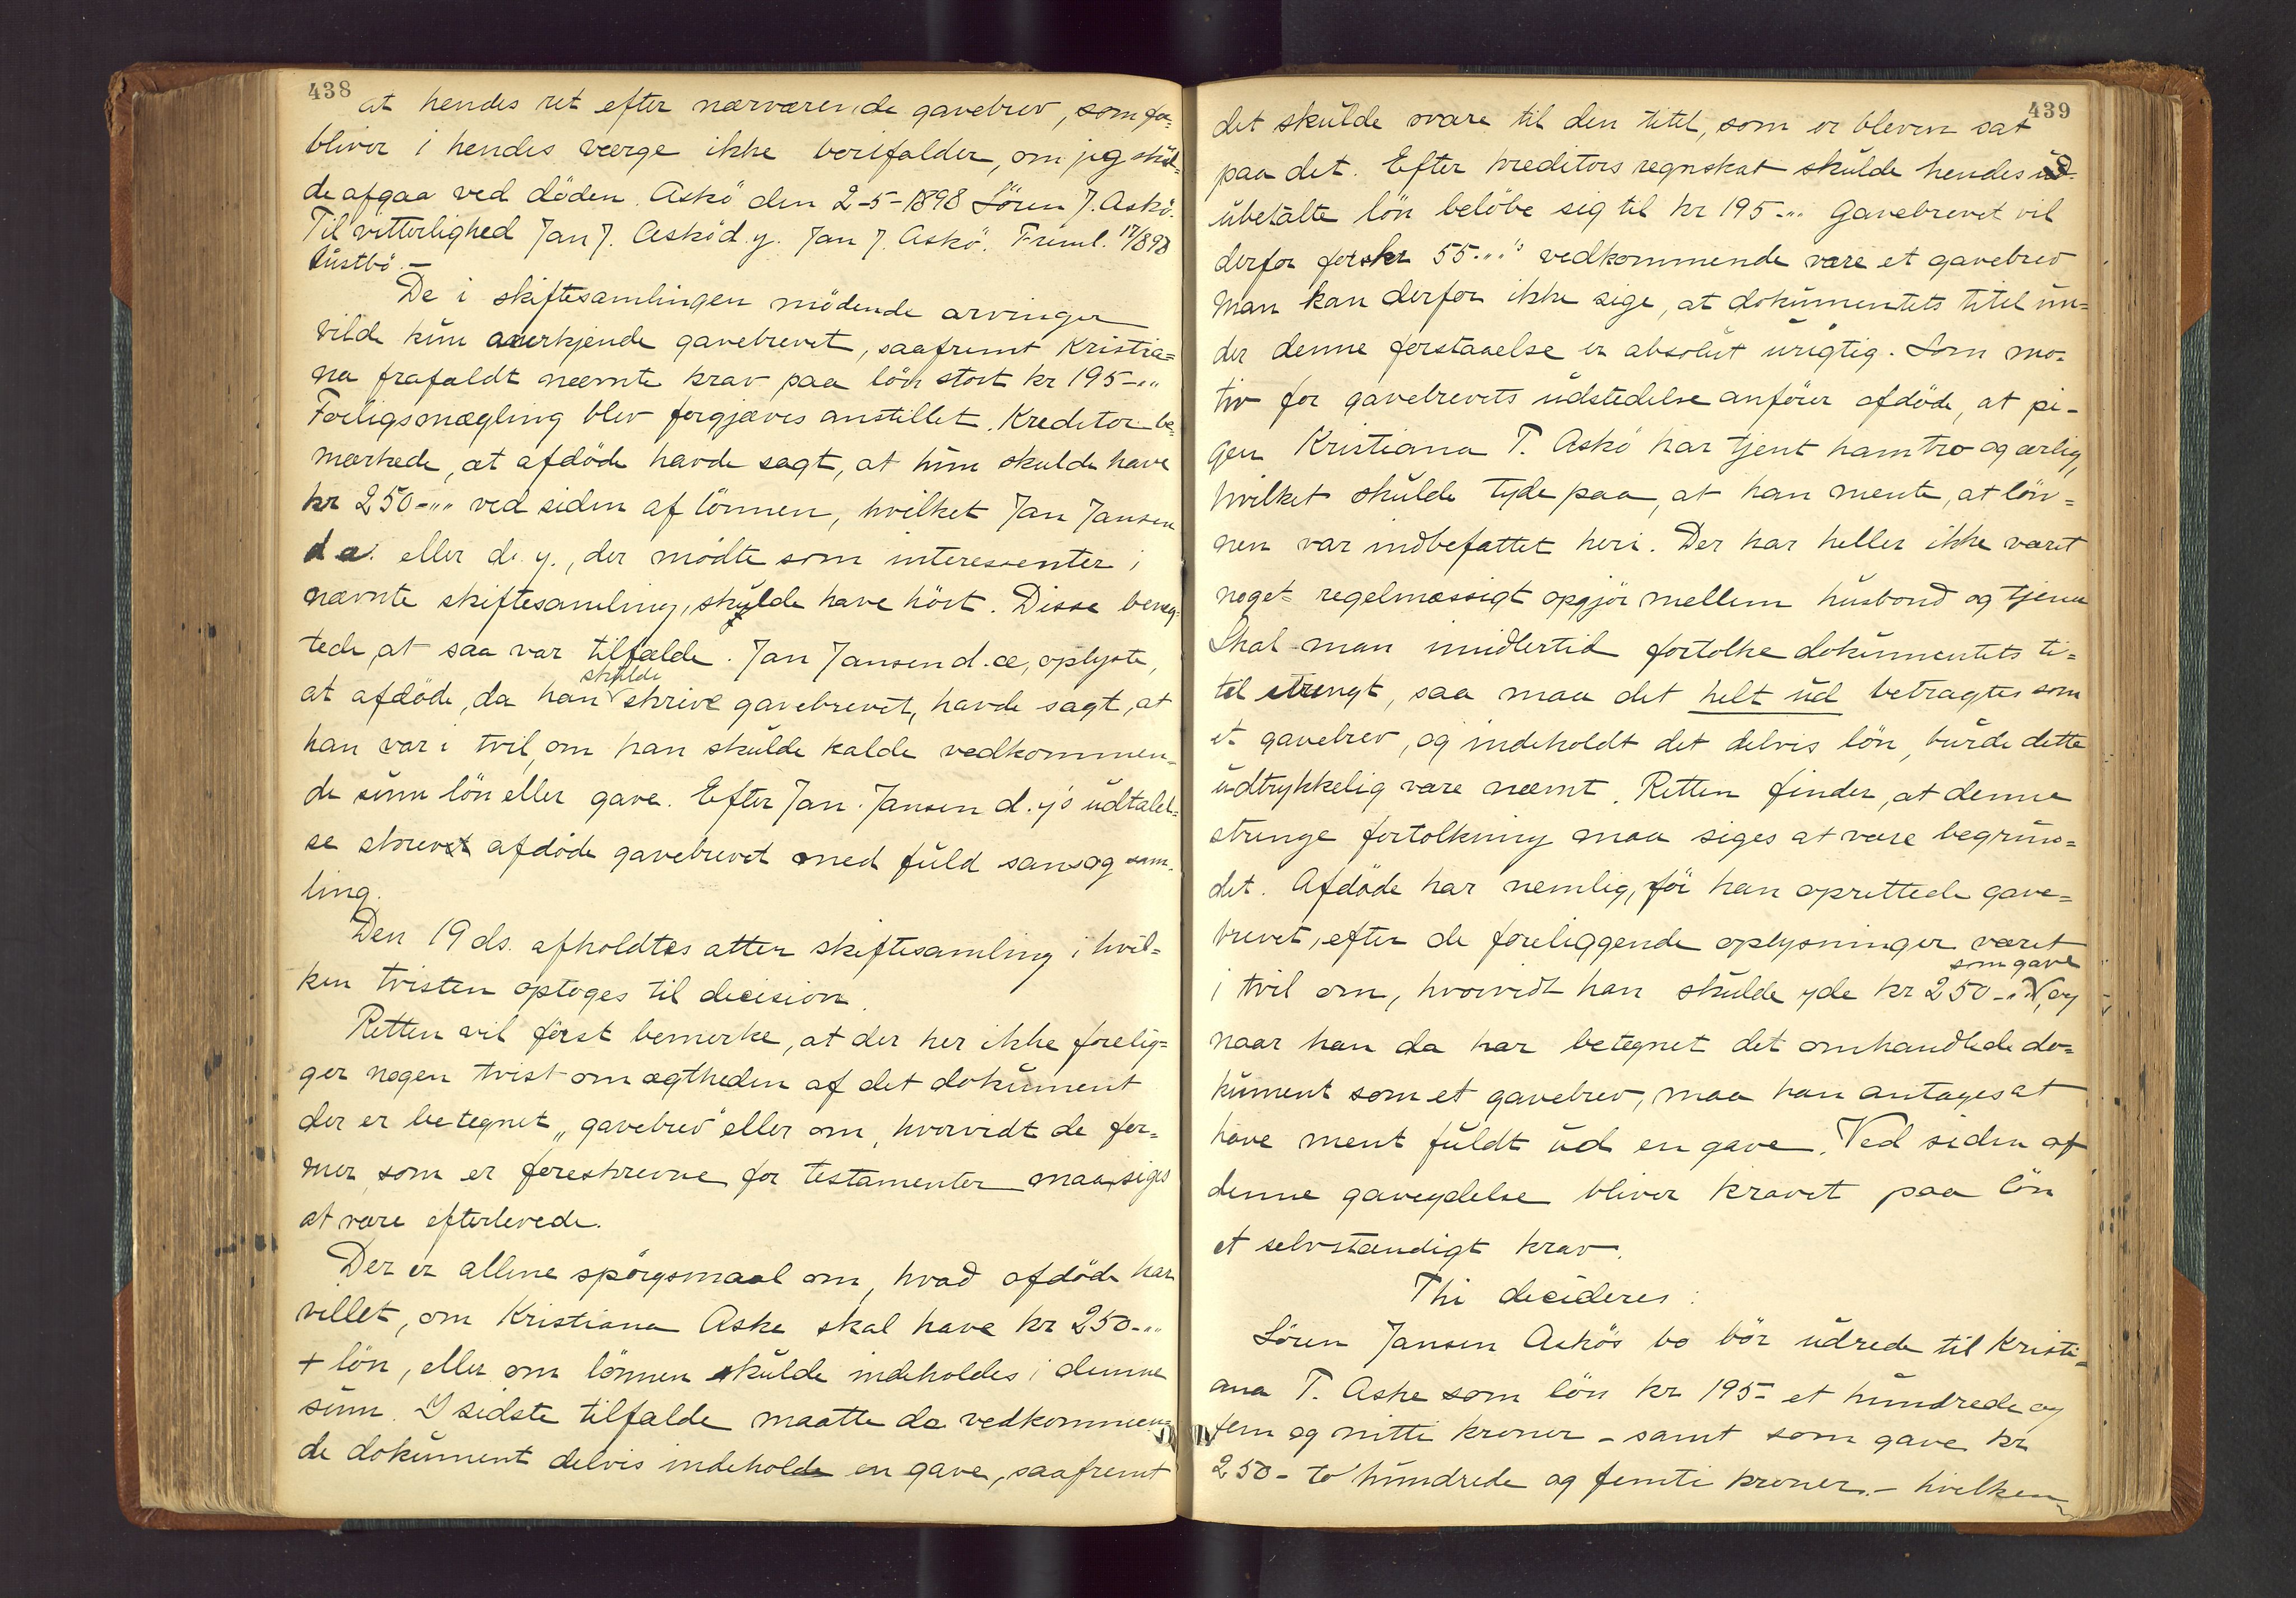 438
at hendes ret efter nærværende gavebrev, som for-
bliver i hendes værge ikke bortfalder, om jeg skul-
de afgaa ved döden. Askö den 2-5-1898 Sören J. Askö.
Til vitterlighed Jan J. Askö d.y. Jan J. Askö. Freml. 17/8 98
Lustbö.-
De i skiftesamlingen mödende arvinger
vilde kun anerkjende gavebrevet, saafremt Kristia=
na frafaldt nævnte krav paa lön stort kr 195-"
Forligsmægling blev forgjæves anstillet. Kreditor be-
mærkede, at afdöde havde sagt, at hun skulde have
kr 250-"" ved siden af lönnen, hvilket Jan Jansen
d æ. eller d. y., der mödte som interessenter i
nævnte skiftesamling, skulde have hört. Disse beneg-
tede, at saa var tilfælde. Jan Jansen d. æ, oplyste,
at afdöde, da han skulde skrive gavebrevet, havde sagt, at
han var i tvil, om han skulde kalde vedkommen-
de sum lön eller gave. Efter Jan Jansen d. y's udtalel-
se skrev afdöde gavebrevet med fuld sans og sam-
ling.
Den 19 ds. afholdtes atter skiftesamling i hvil=
ken tvisten optoges til decision.
Retten vil först bemerke, at der her ikke forelig=
ger nogen tvist om ægtheden af det dokument
der er betegnet „gavebrev" eller om, hvorvidt de for=
mer, som er foreskrevne for testamenter maa siges
at være efterlevede.
Der er allene spörgsmaal om, hvad afdöde har
villet, om Kristiana Aske skal have kr 250-""
+ lön, eller om lönnen skulde indeholdes i denne
sum. I sidste tilfælde maatte da vedkommen=
de dokument delvis indeholde en gave, saafremt
439
det skulde svare til den titel, som er bleven sat
paa det. Efter kreditors regnskab skulde hendes
ubetalte lön belöbe sig til kr 195-"" Gavebrevet vil
derfor for kr 55-"" vedkommende være et gavebrev
Man kan derfor ikke sige, at dokumentets titel un=
der denne forstaaelse er absolut urigtig. Som mo-
tiv for gavebrevets udstedelse anförer afdöde, at pi-
gen Kristiana T. Askö har tjent ham tro og ærlig,
hvilket skulde tyde paa, at han mente, at lön=
nen var indbefattet heri. Der har heller ikke været
noget regelmæssigt opgjör mellem husbond og tjener
Skal man imidlertid fortolke dokumentets ti=
tel strengt, saa maa det helt ud betragtes som
et gavebrev, og indeholdt det delvis lön, burde dette
udtrykkelig være nævnt. Retten finder, at denne
strenge fortolkning maa siges at være begrun=
det. Afdöde har nemlig, för han oprettede gave=
brevet, efter de foreliggende oplysninger været
i tvil om, hvorvidt han skulde yde kr 250-"" som gave, og
naar han da har betegnet det omhandlede do=
kument som et gavebrev, maa han antages at
have ment fuldt ud en gave. Ved siden af
denne gaveydelse bliver kravet paa lön
et selvstændigt krav.
Thi decideres:
Sören Jansen Askös bo bör udrede til Kristi=
ana T. Aske som lön kr 195- et hundrede og
fem og nitti kroner - samt som gave kr
250- to hundrede og femti kroner. - hvilken